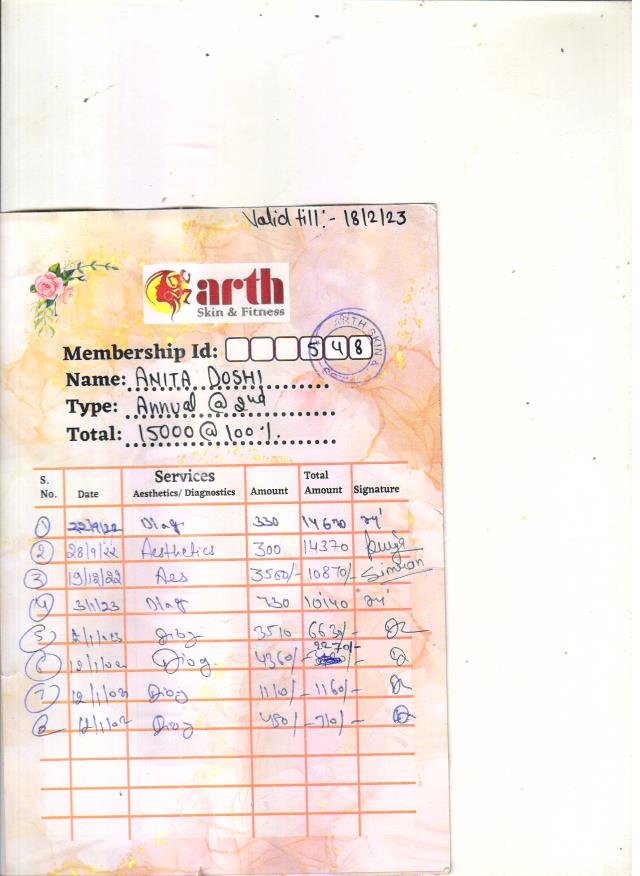 Valid till:- 18/2/23
arth
Skin & Fitness
ARTH SKIN &
Membership Id: 548
Name: ANITA DOSHI
Type: Annual @ 2nd
Total: 15000 @ 100%
S. No. Date Services Aesthetics/ Diagnostics Amount Total Amount Signature
1 22/9/22 Diag 330 14670
2 28/9/22 Aesthetics 300 14370 puja
3 19/12/22 Aes 3500/- 10870/- Simran
4 3/1/23 Diag 730 10140
5 Diag 3510 6630/-
6 12/1/02 Diag. 4360/- 2270/-
7 12/1/02 Diag 1110/- 1160/-
8 12/1/02 Diag 450/- 710/-